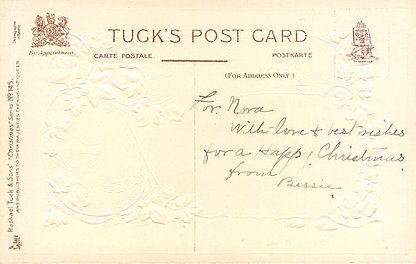 TUCK'S POST CARD
By Appointment.
CARTE POSTALE.
POSTKARTE
(FOR ADDRESS ONLY)
For Nora
With love & best wishes
for a Happy Christmas
from
Bessie
Raphael Tuck & Sons' "Christmas" Series No. 145.
ART PUBLISHERS TO THEIR MAJESTIES THE KING AND QUEEN.